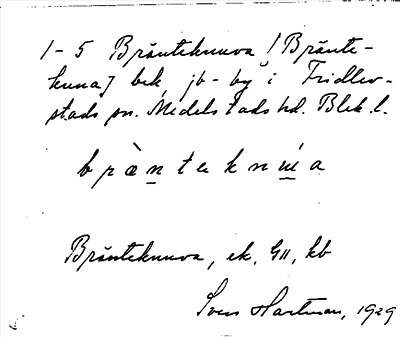 1-5 Bränteknuva [Bränte-
kuna] bek jb-by i Fridlev-
stads sn. Medelstads hd. Blek. l.
bränteknua
Bränteknuva, ek, GII, kb
Sven Hartman, 1929